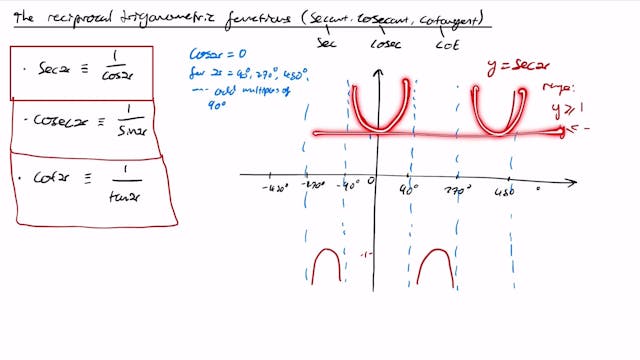 The reciprocal trigonometric functions (secant, cosecant, cotangent)
Sec
Cosec
Cot
· Sec x ≡ 1/cos x
· Cosec x ≡ 1/sin x
· Cot x ≡ 1/tan x
cos x = 0
for x = 90°, 270°, 450°,
--- odd multiples of
90°
y = sec x
range:
y ≥ 1
-270° -90° 0 90° 270° 450
-1